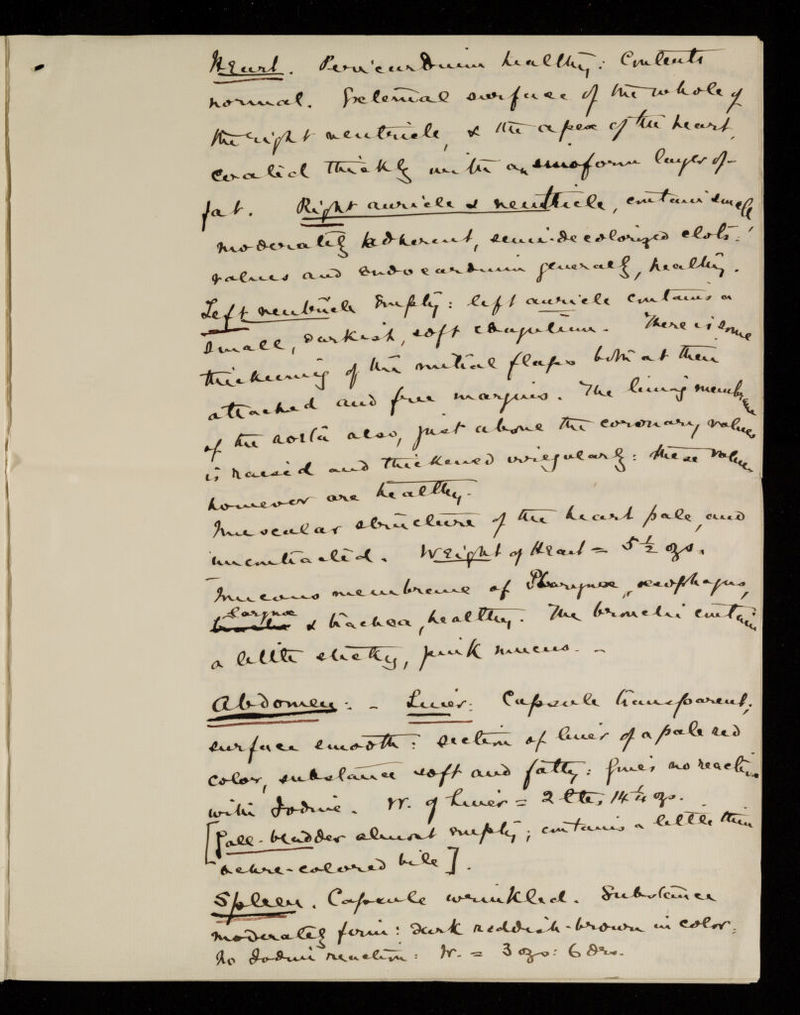 Heart. Pericardium healthy: Contents
normal. External surface of the whole of
the right ventricle, & the apex of the heart,
coated thickly with a layer of
fat. Right auricle & ventricle, contain small
moderately adherent, semi-decolorized clots:
valves and endocardium generally, healthy.
Left ventricle empty: left auricle contains a
small, darkish, soft coagulum. There is some
thickening of the mitral flaps both at their
attached and free margins. The lining membrane
of the aorta also, just above the coronary valves
is raised and thickened irregularly: these valves
however are healthy.
Muscular structure of the heart pale, and
uncontracted. Weight of Heart = 5½ ozs.
Mucous membrane of Pharynx, oesophagus,
larynx & trachea, healthy. The bronchi contain
a little sticky, pink mucus. -
Abdomen: - Liver: Capsule transparent,
surface smooth: section of liver of a pale red
color, substance soft and fatty: gives no reaction
with Iodine. Wt. of Liver = 2 lbs, 14¼ ozs.
[Gall-bladder almost empty; contains a little thin
-colored bile].
Spleen. Capsule wrinkled. Substance
moderately firm: dark reddish-brown in color.
No Iodine reaction: Wt. = 3 ozs: 6 drs.